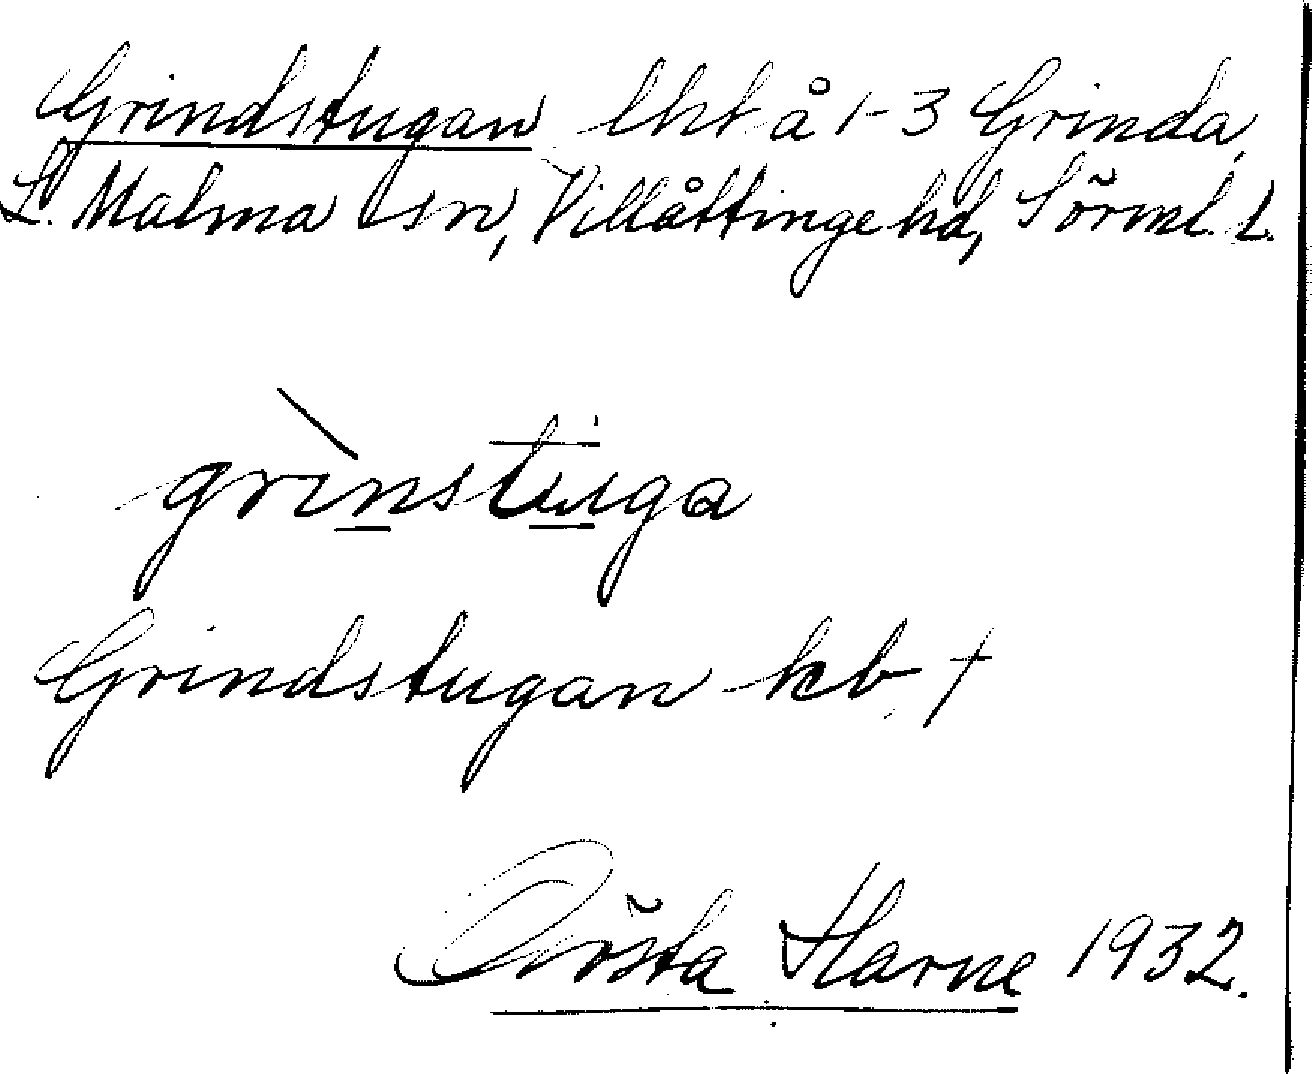 Grindstugan lht å 1-3 Grinda,
L. Malma sn, Villåttinge hd, Sörml. l.
grinstuga
Grindstugan kb †
Harne 1932.